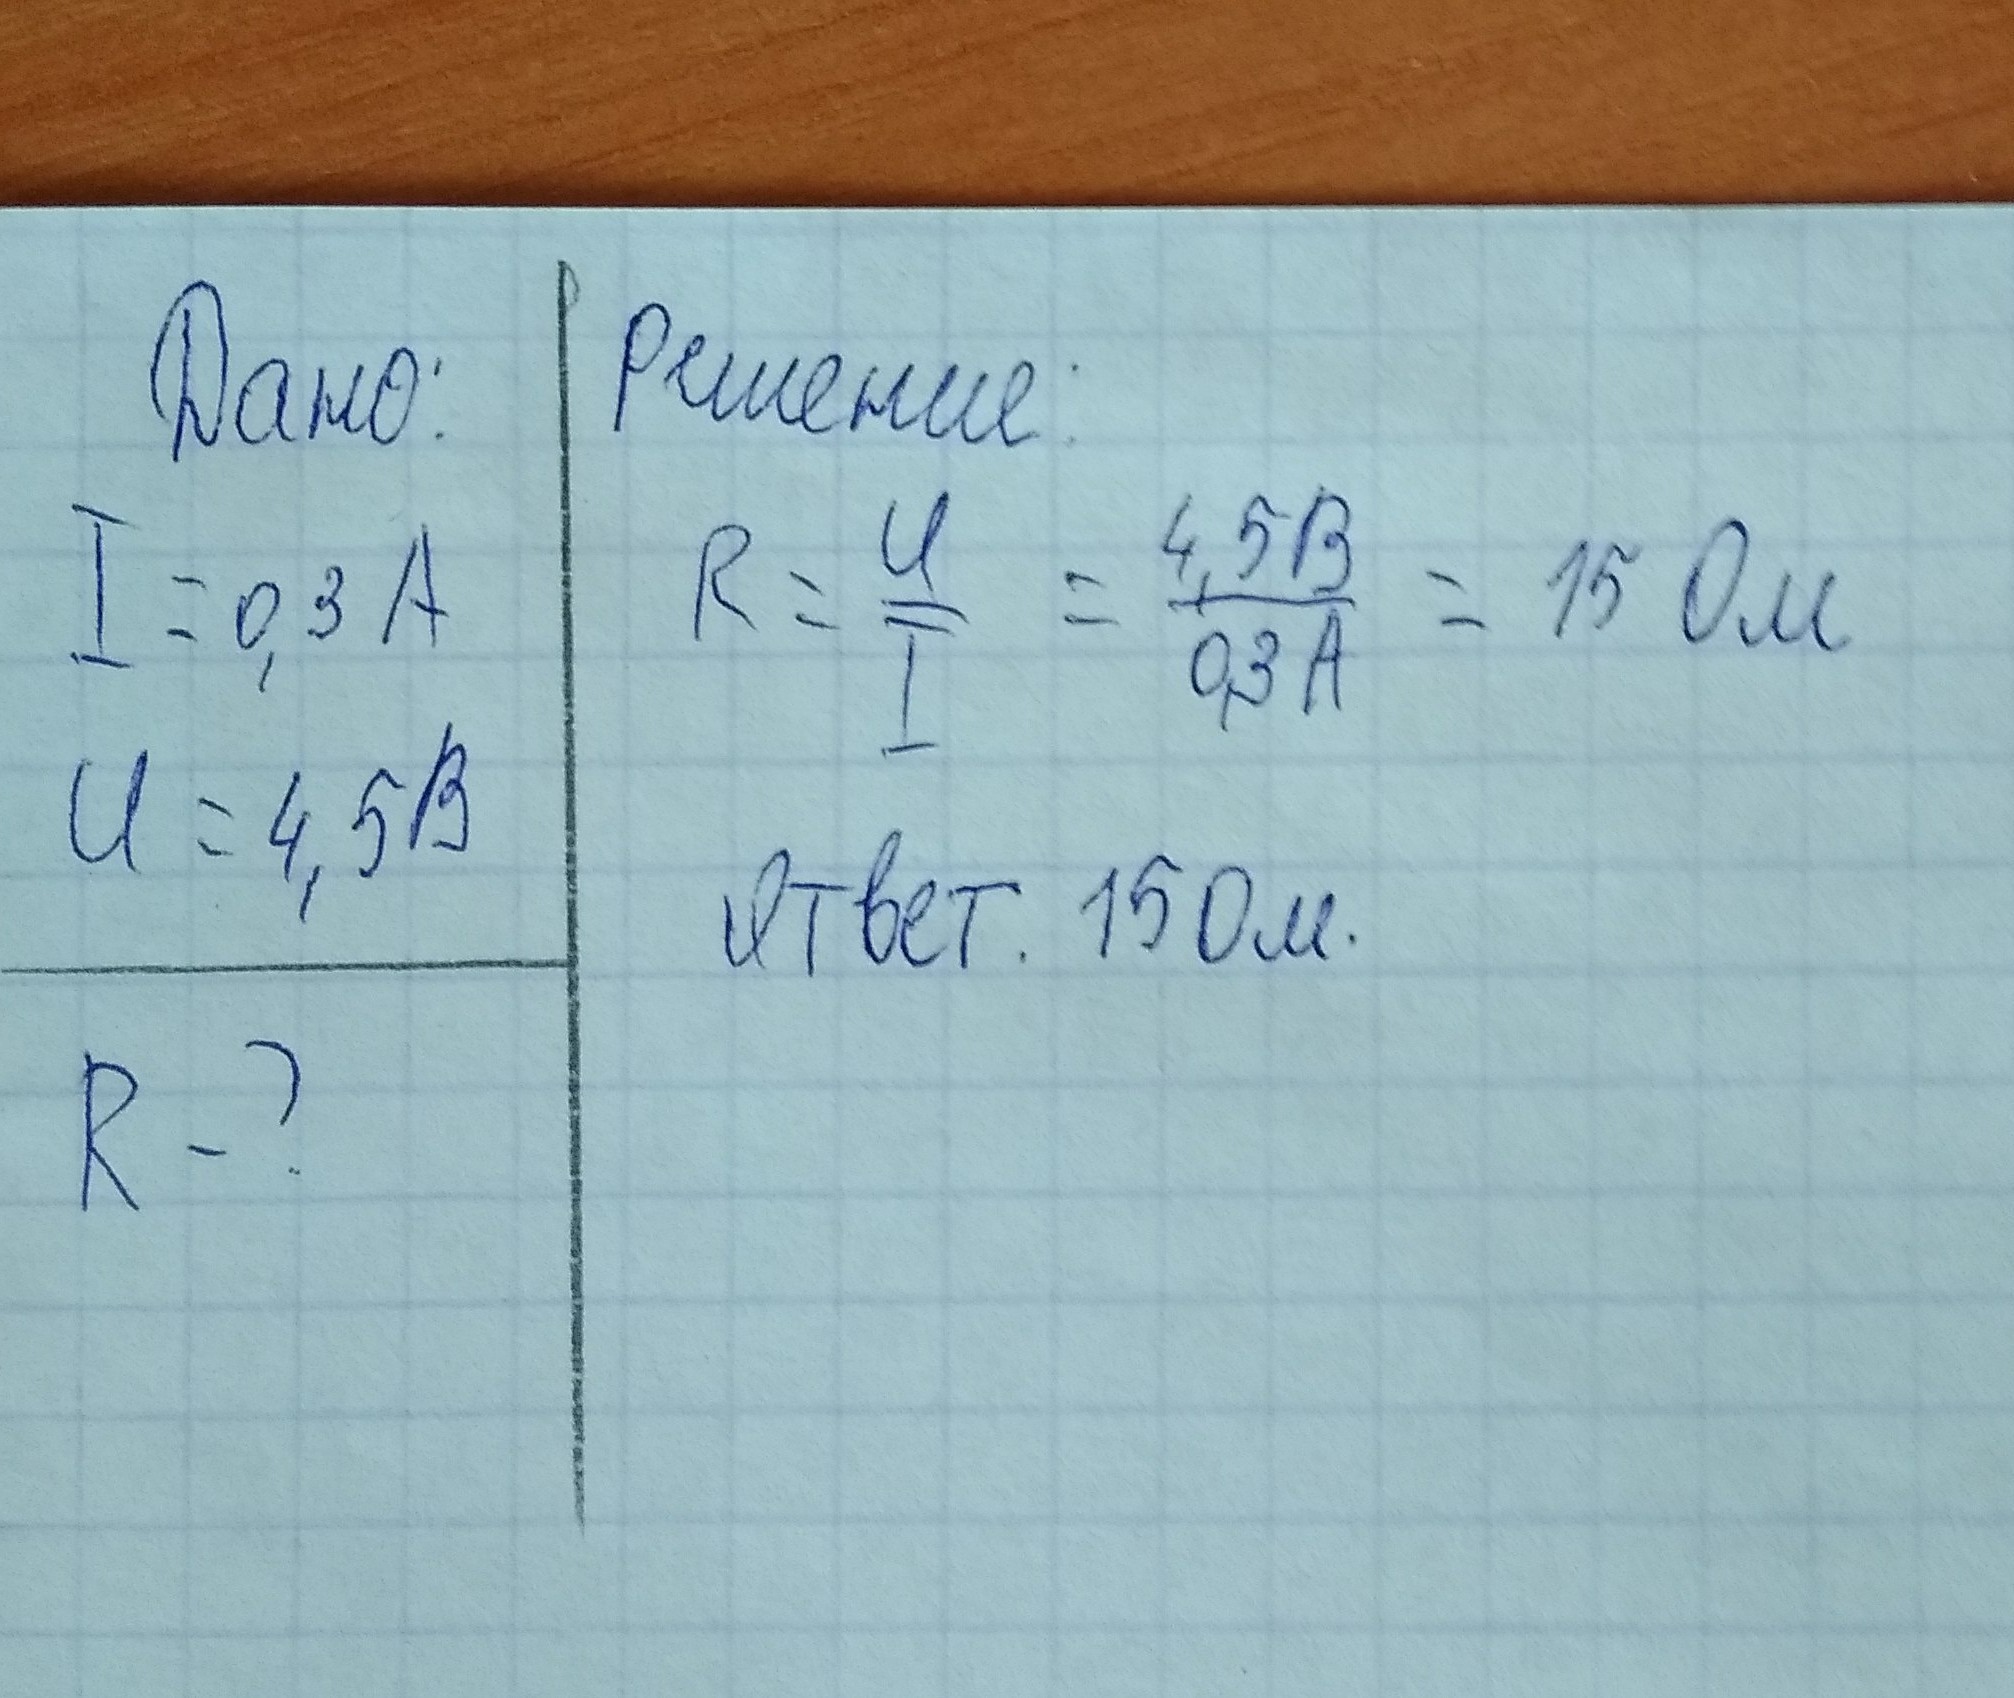 Дано:
I = 0,3 А
U = 4,5 В
R - ?
Решение:
R = U/I = 4,5 В/0,3 А = 15 Ом
Ответ. 15 Ом.